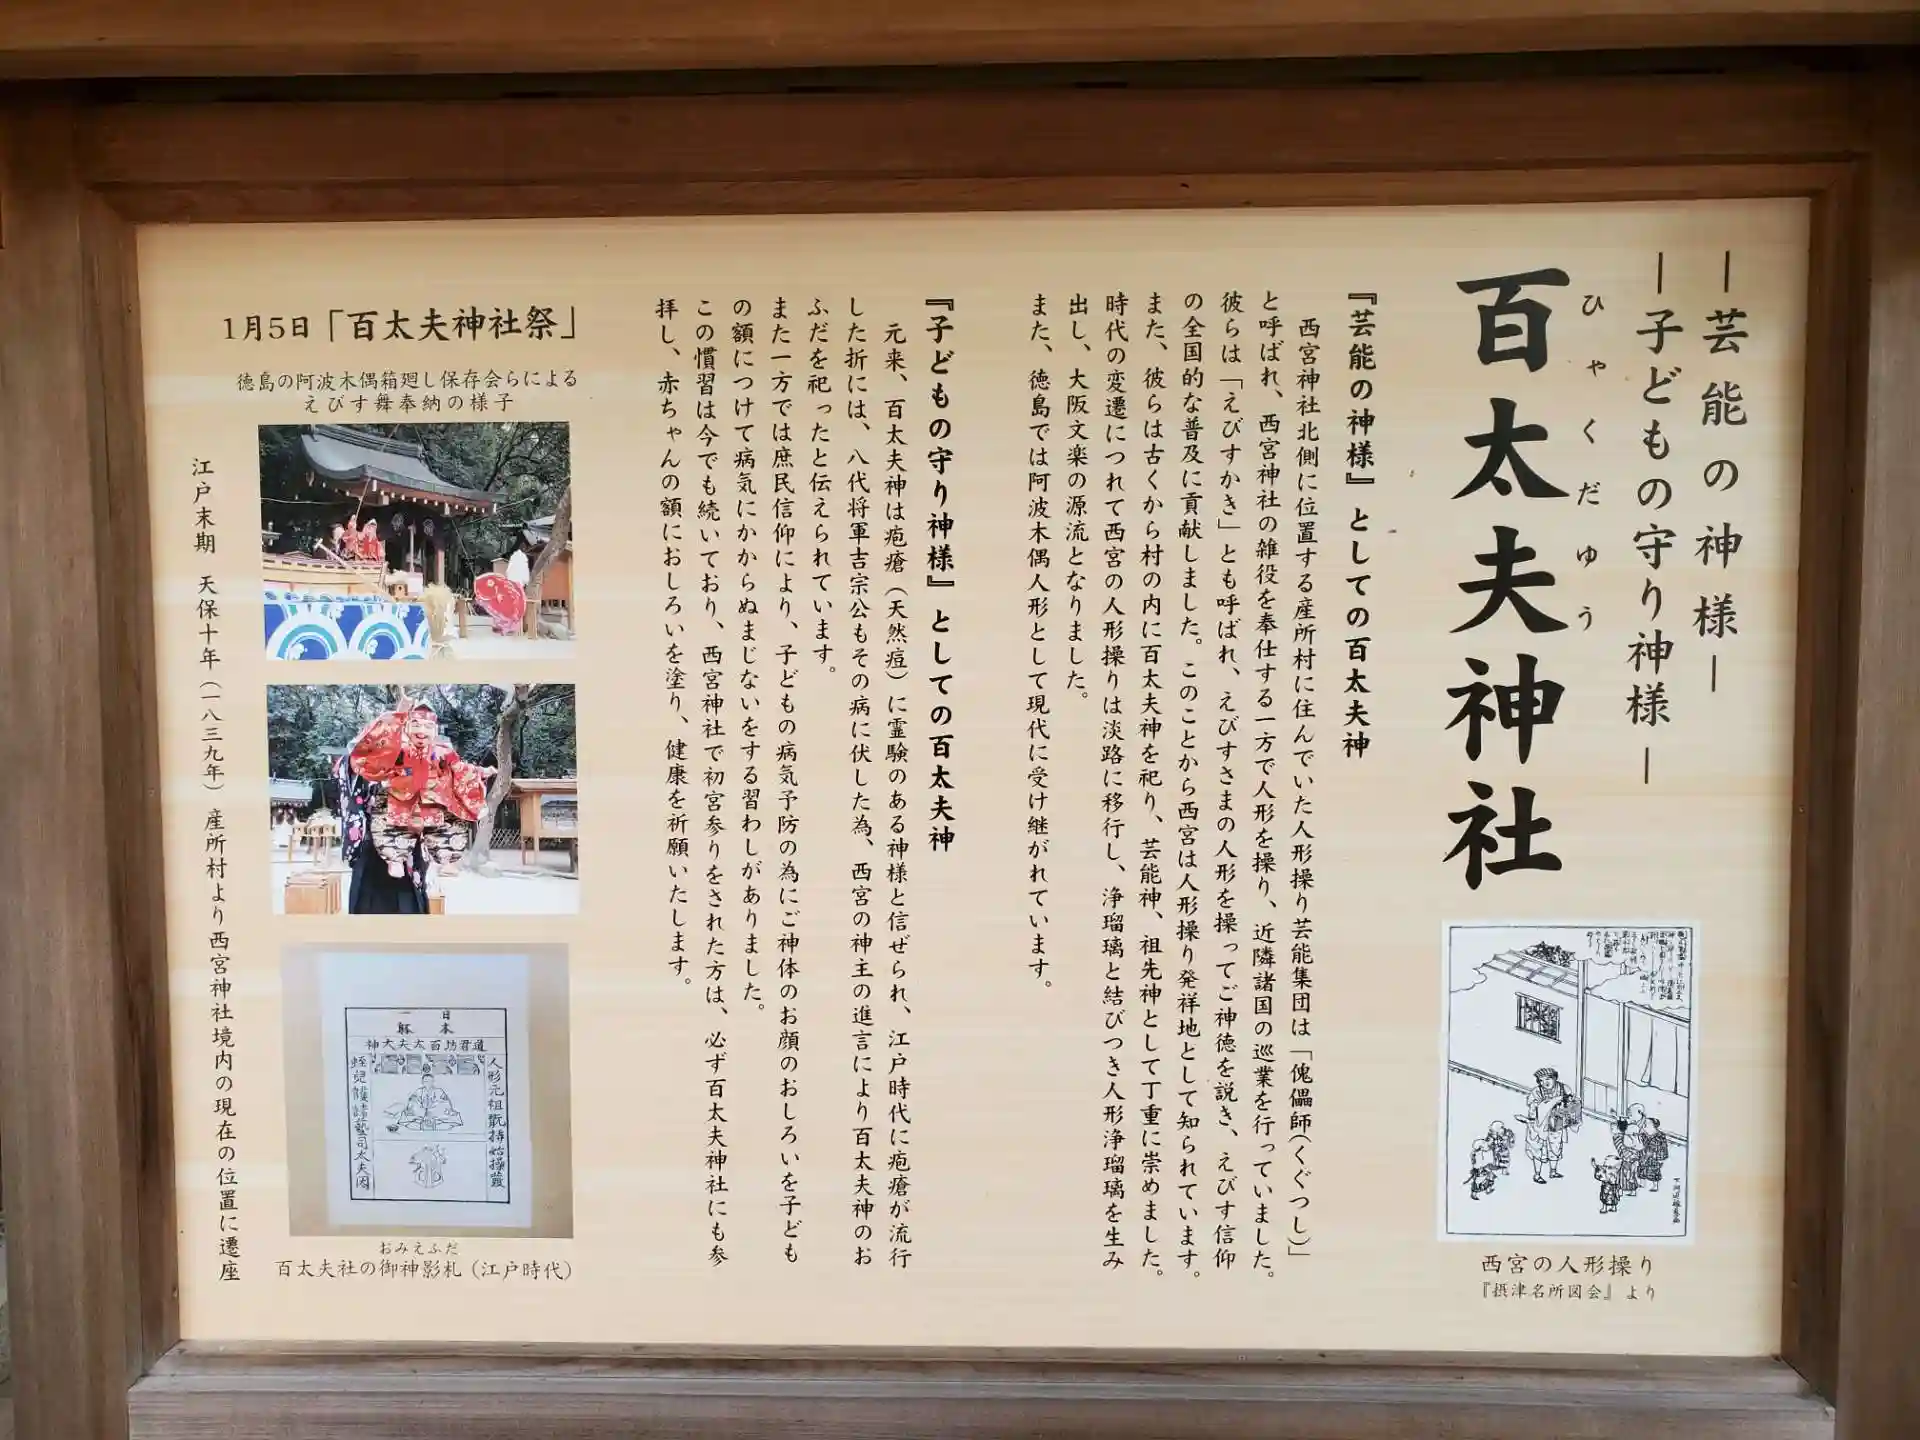 ―芸能の神様―
―子どもの守り神様―
ひゃくだゆう
百太夫神社
西宮の人形操り
『摂津名所図会』より
『芸能の神様』としての百太夫神
西宮神社北側に位置する産所村に住んでいた人形操り芸能集団は「傀儡師(くぐつし)」
と呼ばれ、西宮神社の雑役を奉仕する一方で人形を操り、近隣諸国の巡業を行っていました。
彼らは「えびすかき」とも呼ばれ、えびすさまの人形を操ってご神徳を説き、えびす信仰
の全国的な普及に貢献しました。このことから西宮は人形操り発祥地として知られています。
また、彼らは古くから村の内に百太夫神を祀り、芸能神、祖先神として丁重に崇めました。
時代の変遷につれて西宮の人形操りは淡路に移行し、浄瑠璃と結びつき人形浄瑠璃を生み
出し、大阪文楽の源流となりました。
また、徳島では阿波木偶人形として現代に受け継がれています。
『子どもの守り神様』としての百太夫神
元来、百太夫神は疱瘡（天然痘）に霊験のある神様と信ぜられ、江戸時代に疱瘡が流行
した折には、八代将軍吉宗公もその病に伏した為、西宮の神主の進言により百太夫神のお
ふだを祀ったと伝えられています。
また一方では庶民信仰により、子どもの病気予防の為にご神体のお顔のおしろいを子ども
の額につけて病気にかからぬまじないをする習わしがありました。
この慣習は今でも続いており、西宮神社で初宮参りをされた方は、必ず百太夫神社にも参
拝し、赤ちゃんの額におしろいを塗り、健康を祈願いたします。
1月5日「百太夫神社祭」
徳島の阿波木偶箱廻し保存会らによる
えびす舞奉納の様子
日本
神大夫太百坊君道
人形元祖
おみえふだ
百太夫社の御神影札（江戸時代）
江戸末期　天保十年（一八三九年）産所村より西宮神社境内の現在の位置に遷座